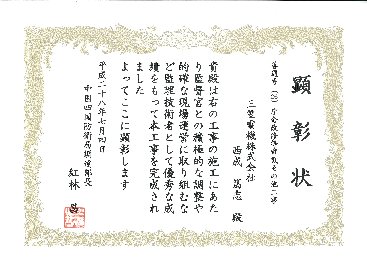 顕彰状
三笠電機株式会社
西成 篤志 殿
貴殿は右の工事の施工にあた
り監督官との積極的な調整や
的確な現場運営に取り組むな
ど監理技術者として優秀な成
績をもって本工事を完成され
ました
よってここに顕彰します
平成二十八年七月四日
中国四国防衛局調達部長
紅林 昌